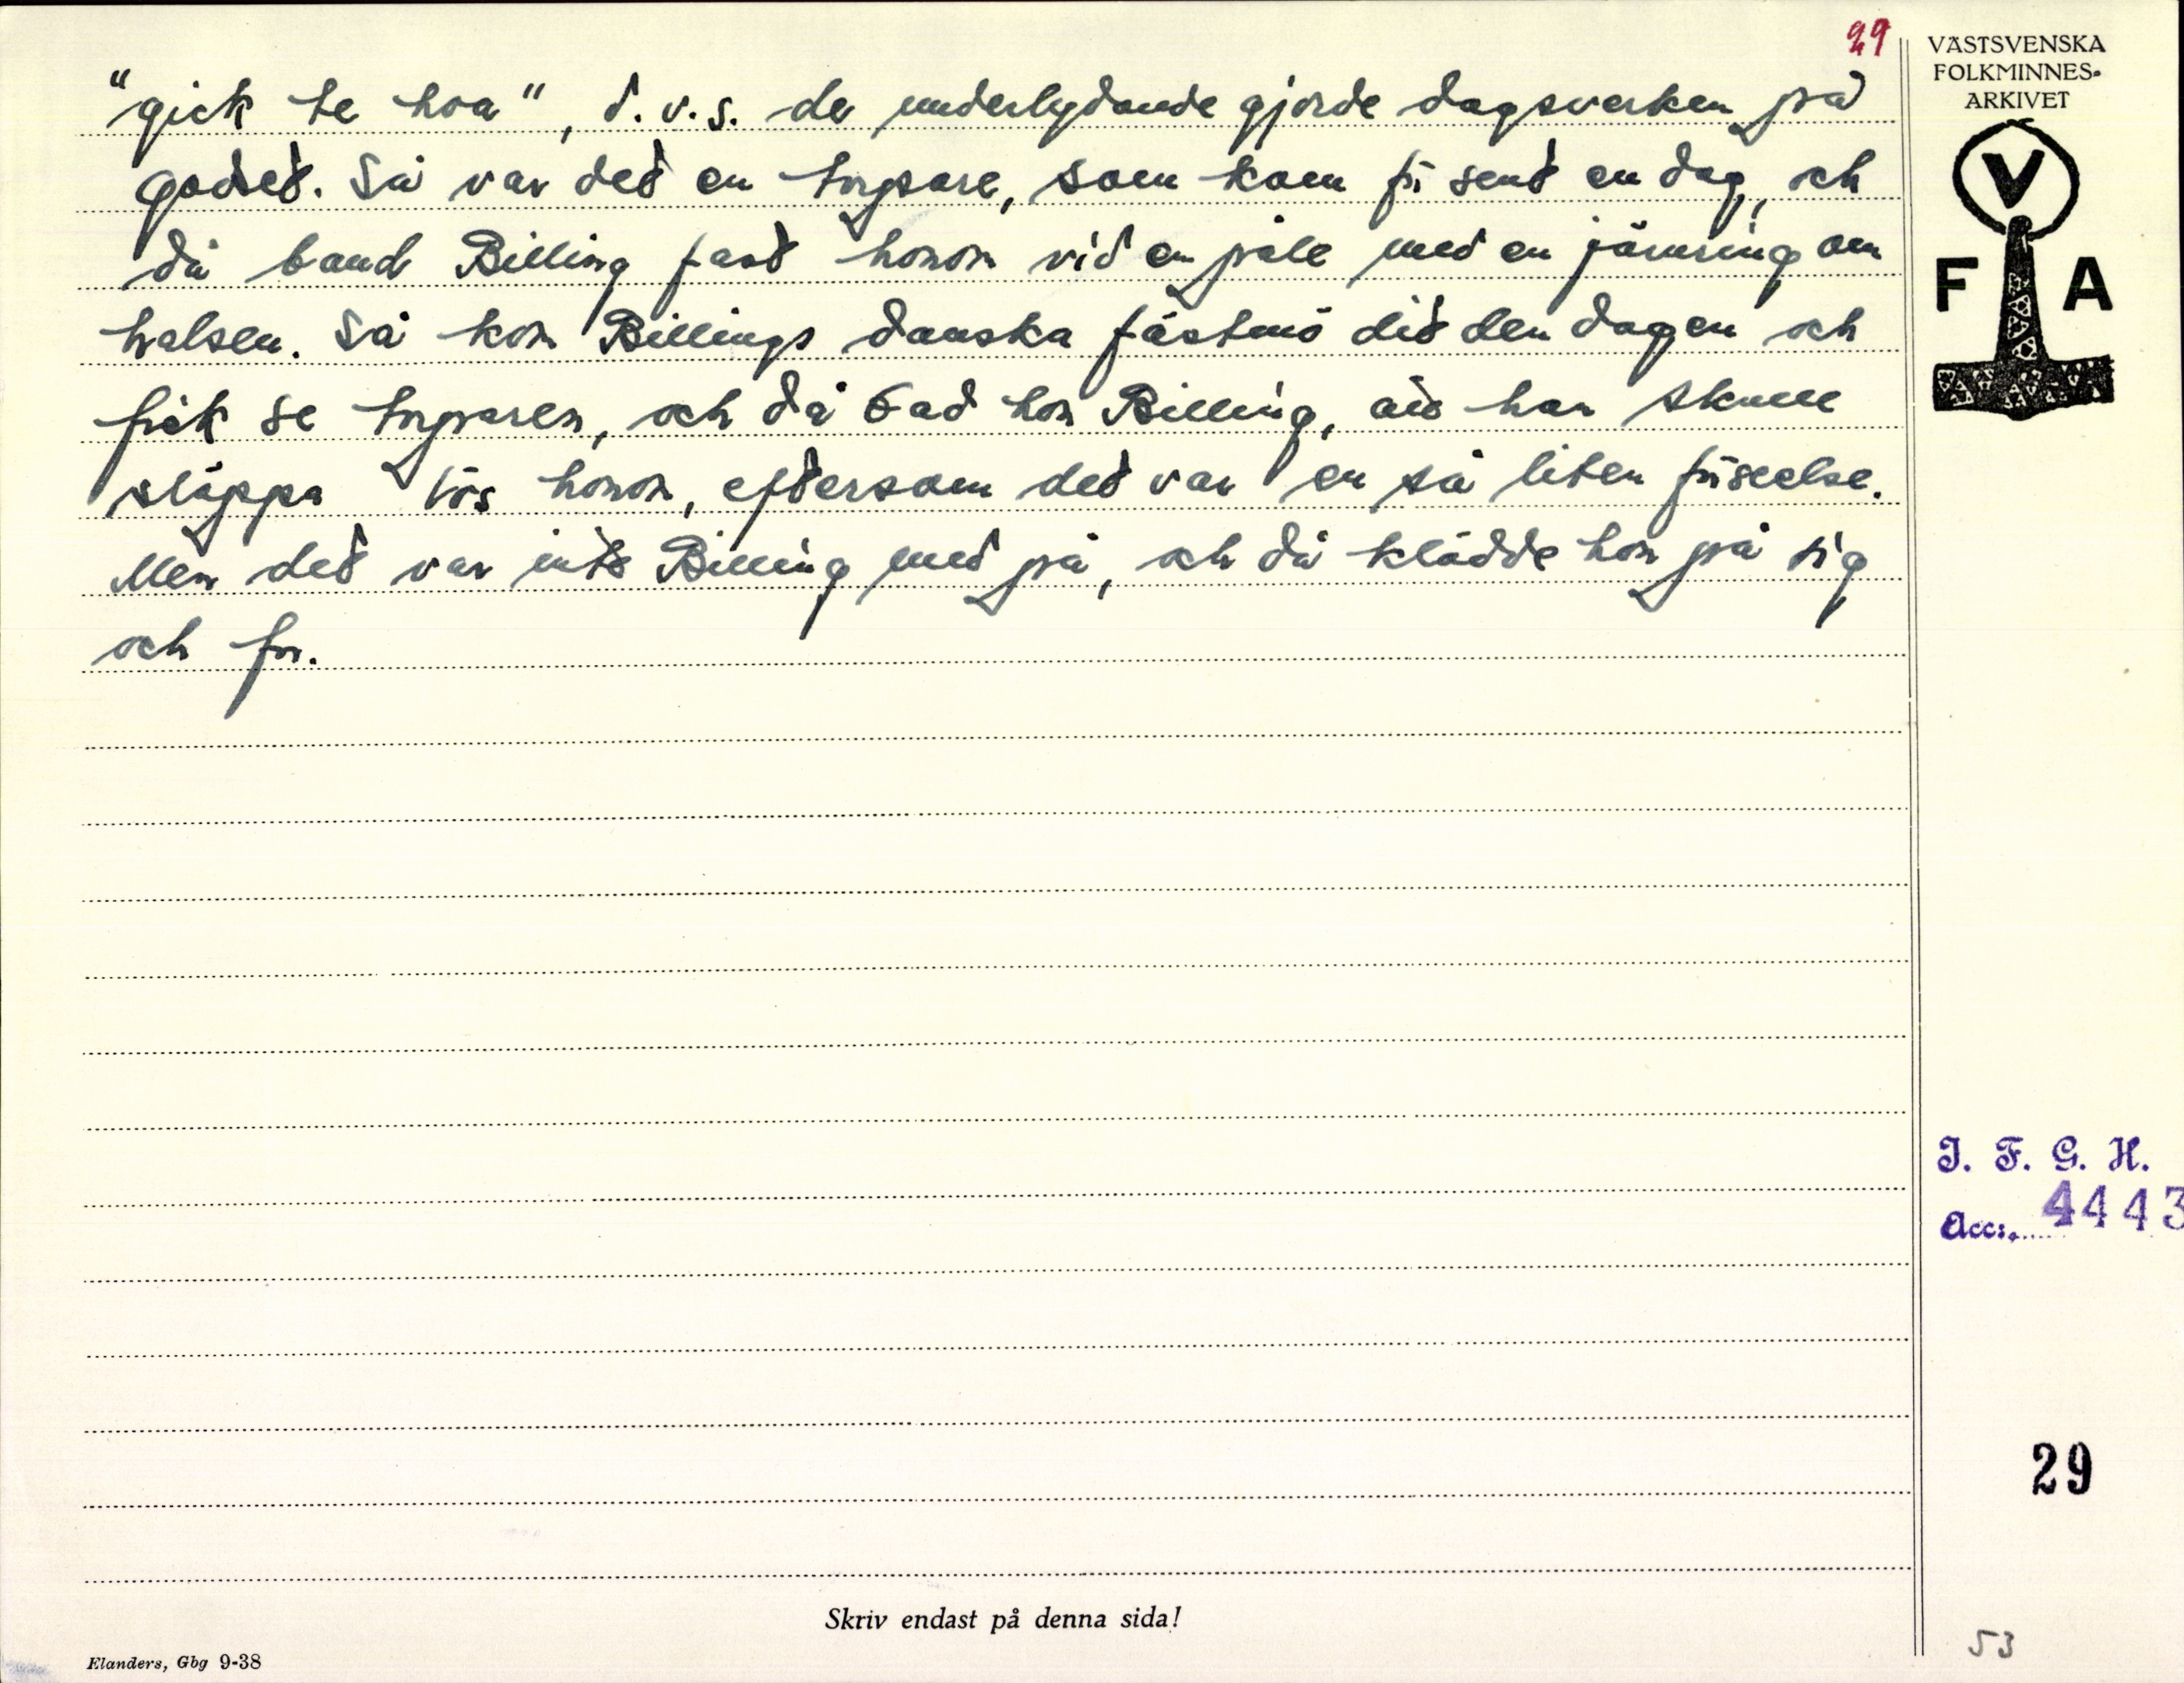 29
"gick te hoa", d.v.s. de underlydande gjorde dagsverken på
godset. Så var det en torpare, som kom för sent en dag, och
då band Billing fast honom vid en påle med en järnring om
halsen. Så kom Billings danska fästmö dit den dagen och
fick se torparen, och då bad hon Billing, att han skulle
släppa lös honom, eftersom det var en så liten förseelse.
Men det var inte Billing med på, och då klädde hon på sig
och for.
VÄSTSVENSKA
FOLKMINNES-
ARKIVET
V
F A
I. F. G. H.
Acc:. 4443
29
53
Skriv endast på denna sida!
Elanders, Gbg 9-38